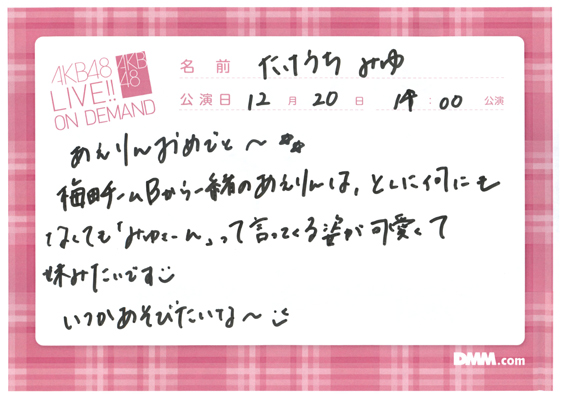 AKB48
LIVE!!
ON DEMAND
AKB
48
名前 たけうち みゆ
公演日 12月20日 14:00 公演
めえりんおめでと〜☆☆
梅田チームBから一緒のめえりんは、とくに何にも
なくても「みゆぅーん」って言ってくる姿が可愛くて
妹みたいです
いつかあそびたいな〜
DMM.com